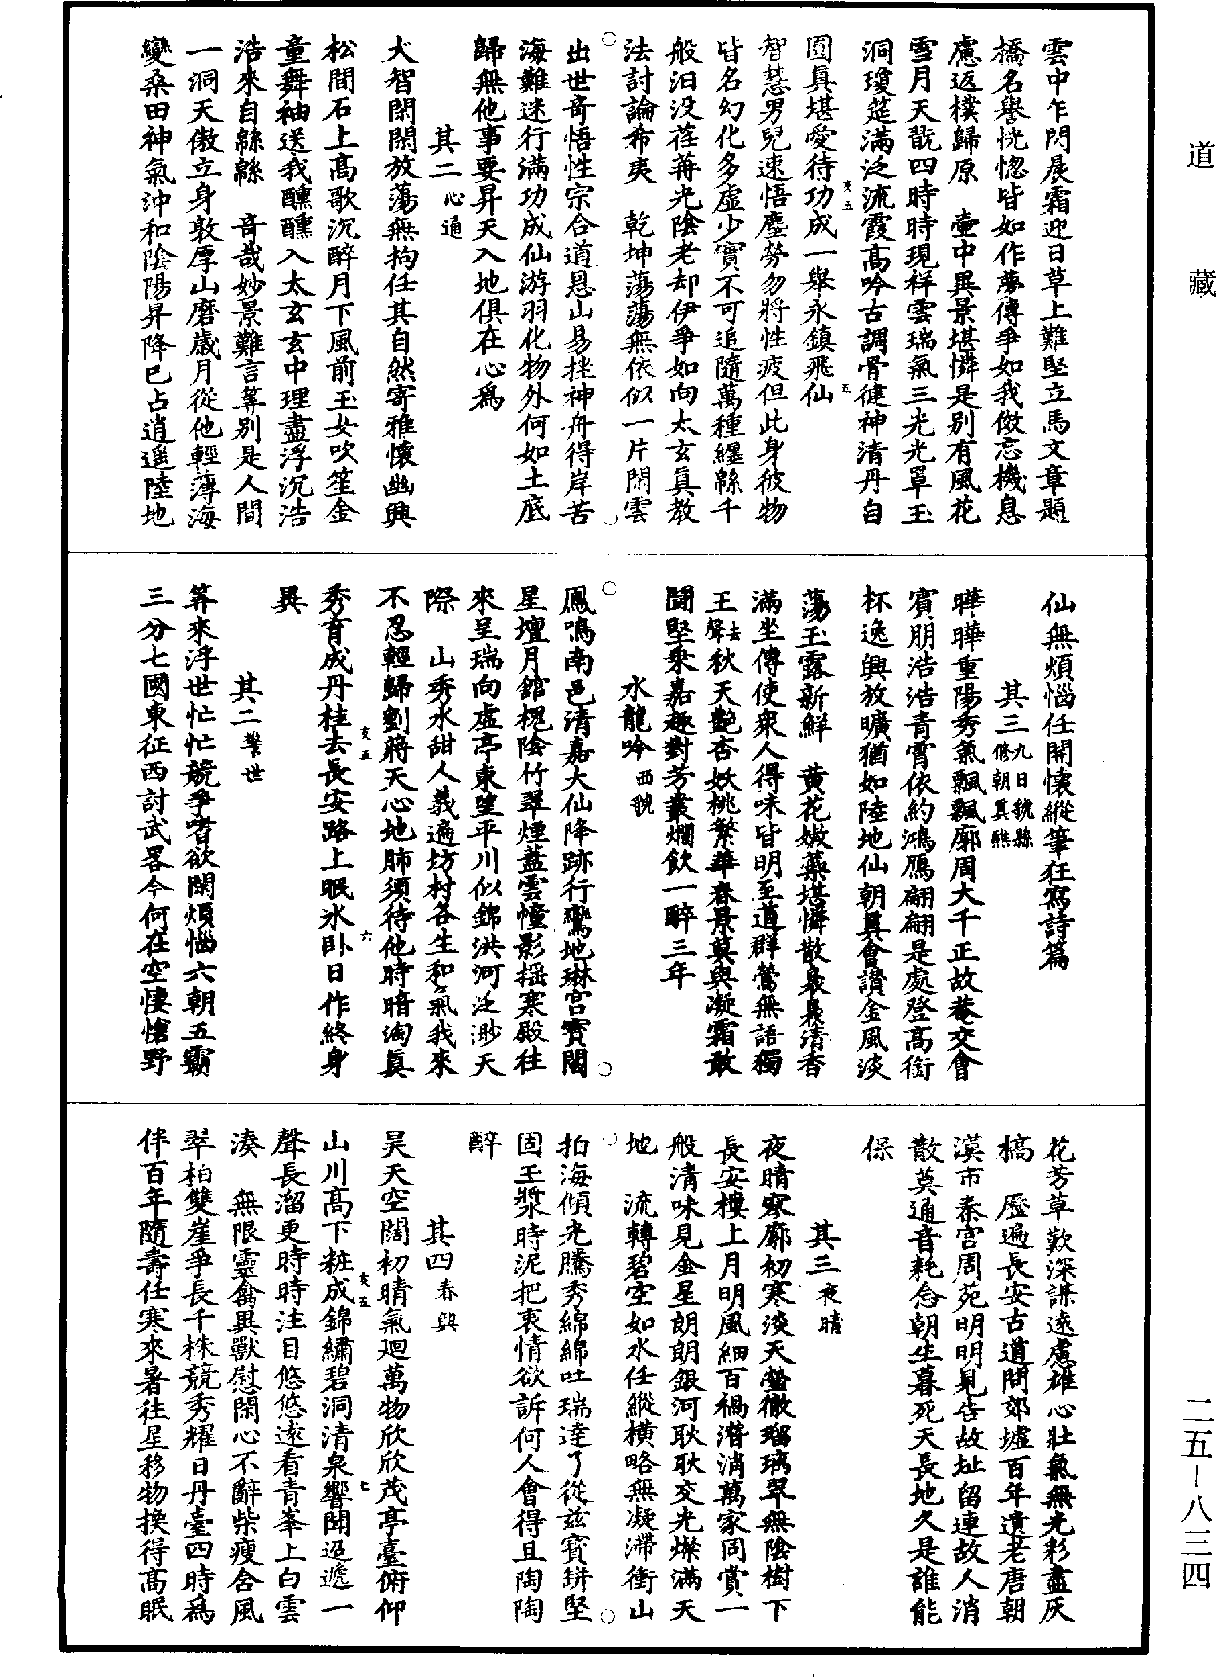 道藏
雲中乍閃晨霜迎日草上難堅立馬文章題
橋名譽恍惚皆如作夢傳爭如我傲忘機息
慮返樸歸原　壺中異景堪憐是別有風花
雪月天說四時時現祥雲瑞氣三光光罩玉
洞瓊筵滿泛流霞高吟古調骨健神清丹自
圓真堪愛待功成一舉永鎮飛仙
智慧男兒速悟塵勞勿將性疲但此身彼物
皆名幻化多虛少實不可追隨萬種纏綿千
般汩没荏苒光陰老却伊爭如向太玄真教
法討論希夷　乾坤蕩蕩無依似一片閑雲
出世奇悟性宗合道恩山易挫神舟得岸苦
海難迷行滿功成仙游羽化物外何如土底
歸無他事要昇天入地俱在心為
其二心通
大智閑閑放蕩無拘任其自然寄雅懷幽興
松間石上高歌沉醉月下風前玉女吹笙金
童舞袖送我醺醺入太玄玄中理盡浮沉浩
浩來自綿綿　奇哉妙景難言筭別是人間
一洞天傲立身敦厚山磨歲月從他輕薄海
變桑田神氣沖和陰陽昇降已占逍遥陸地
仙無煩惱任閑懷縱筆狂寫詩篇
其三九日虢縣脩朝真醮
曄曄重陽秀氣飄飄廓周大千正故菴交會
賓朋浩浩青霄依約鴻鴈翩翩是處登高銜
杯逸興放曠猶如陸地仙朝真會讚金風淡
蕩玉露新鮮　黃花嫩蘂堪憐散裊裊清香
滿坐傳使衆人得味皆明至道群鶯無語獨
王去聲秋天艷杏妖桃繁華春景莫與凝霜敢
鬪堅乘嘉趣對芳叢爛飲一醉三年
水龍吟西虢
鳳鳴南邑清嘉大仙降跡行鸞地琳宮寶閣
星壇月館槐陰竹翠煙蓋雲幢影摇寒殿往
來呈瑞向虛亭東望平川似錦洪河泛渺天
際　山秀水甜人義遍坊村各生和氣我來
不忍輕歸劉蔣天心地肺須待他時暗淘真
秀育成丹桂去長安路上眠氷卧日作終身
異
其二警世
筭來浮世忙忙競爭嗜欲閑煩惱六朝五霸
三分七國東征西討武畧今何在空悽愴野
花芳草歎深謀遠慮雄心壯氣無光彩盡灰
槁　歷遍長安古道問郊墟百年遺老唐朝
漢市秦宮周苑明明見告故址留連故人消
散莫通音耗念朝生暮死天長地久是誰能
保
其三夜晴
夜晴寥廓初寒淡天螢徹瑠璃翠無陰樹下
長安樓上月明風細百禍潛消萬家同賞一
般清味見金星朗朗銀河耿耿交光燦滿天
地　流轉碧空如水任縱横略無凝滯衝山
拍海傾光騰秀綿綿吐瑞達了從兹寶缾堅
固玉漿時泥把衷情欲訴何人會得且陶陶
醉
其四春興
昊天空闊初晴氣廻萬物欣欣茂亭臺俯仰
山川高下粧成錦繡碧洞清泉響聞迢遞一
聲長溜更時時注目悠悠遠看青峯上白雲
湊　無限靈禽異獸慰閑心不辭柴瘦含風
翠柏雙崖爭長千株競秀耀日丹臺四時為
伴百年隨壽任寒來暑往星移物換得高眠
二五－八三四